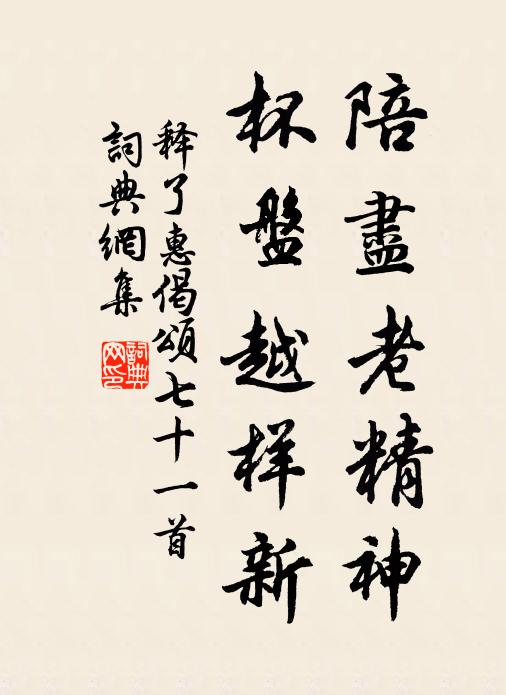 陪盡老精神
杯盤越样新
释了惠偈頌七十一首
詞典網集
詞典網印